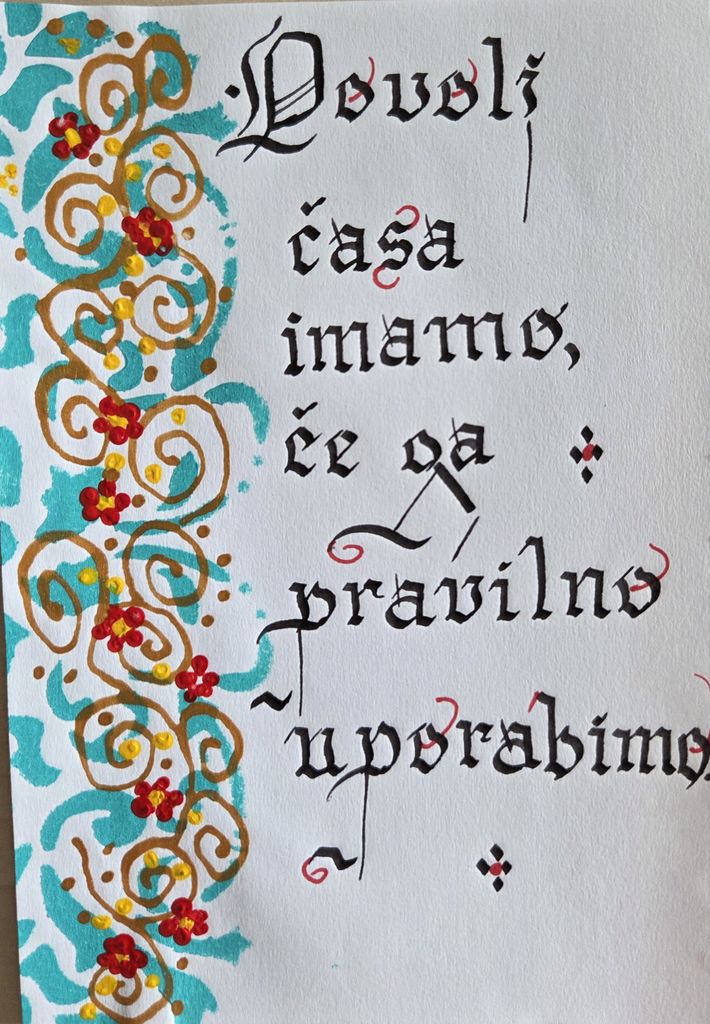 Dovolj
časa
imamo,
če ga
pravilno
uporabimo.